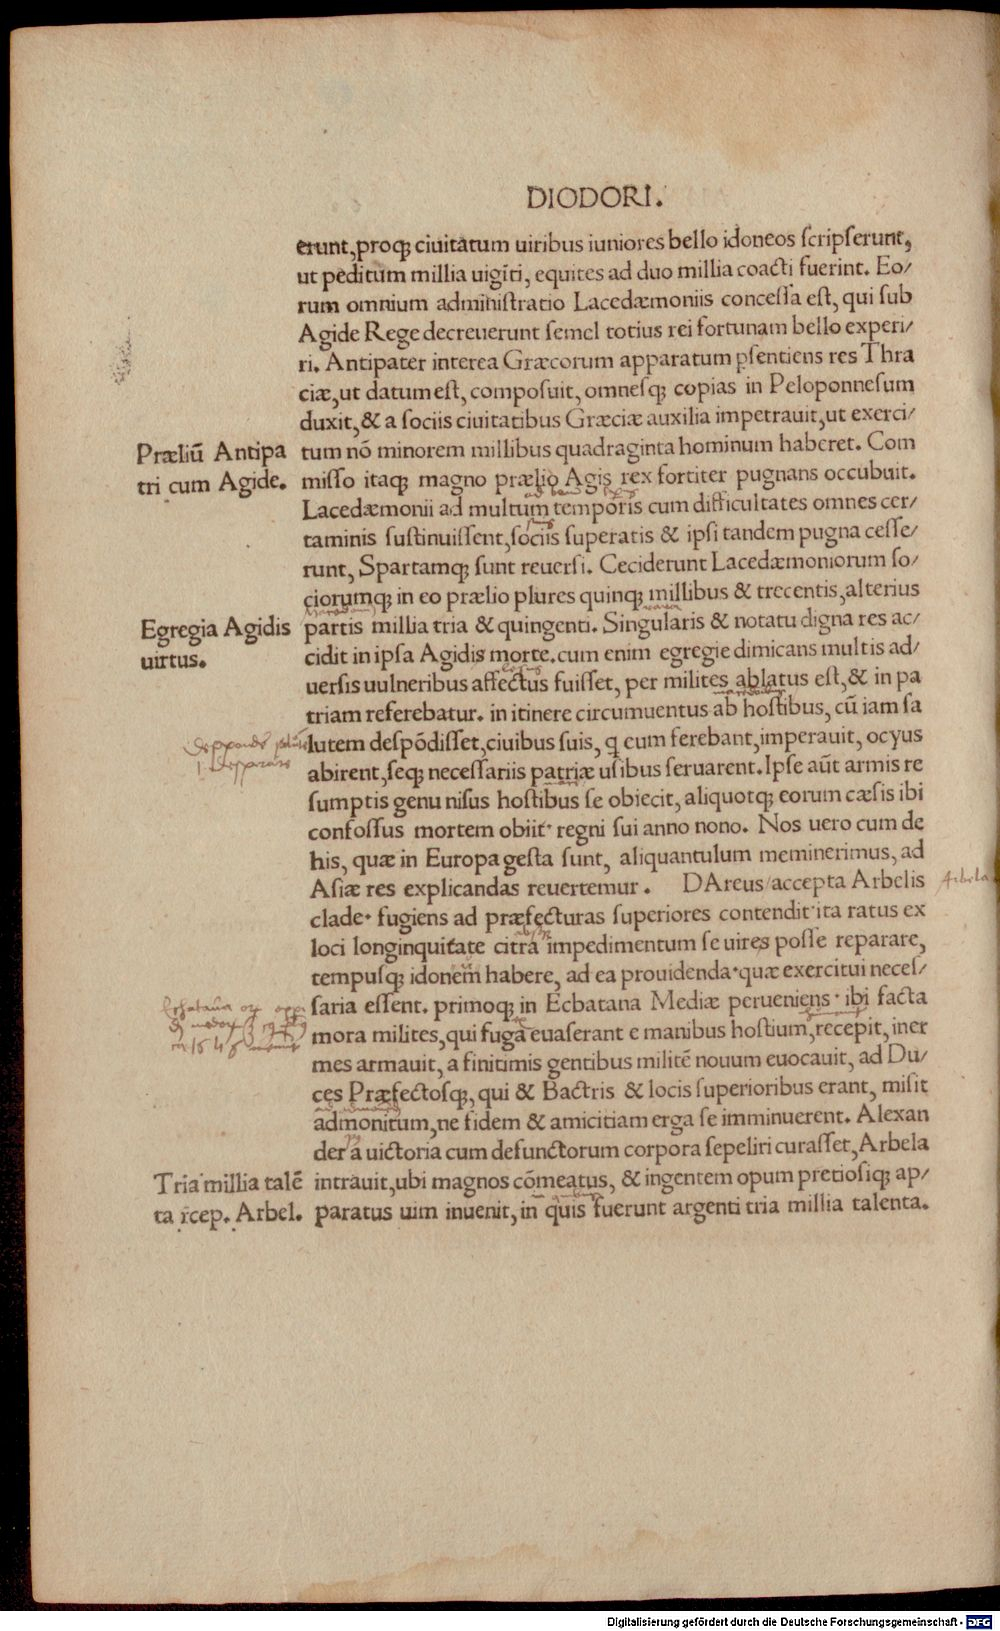 DIODORI.
erunt, proqꝫ ciuitatum uiribus iuniores bello idoneos scripserunt,
ut peditum millia uigīti, equites ad duo millia coacti fuerint. Eo/
rum omnium administratio Lacedæmoniis concessa est, qui sub
Agide Rege decreuerunt semel totius rei fortunam bello experi/
ri. Antipater interea Græcorum apparatum ꝑsentiens res Thra
ciæ, ut datum est, composuit, omnesqꝫ copias in Peloponnesum
duxit, & a sociis ciuitatibus Græciæ auxilia impetrauit, ut exerci/
Præliū Antipa
tri cum Agide.
tum nō minorem millibus quadraginta hominum haberet. Com
misso itaqꝫ magno prælio Agis rex fortiter pugnans occubuit.
Lacedæmonii ad multum temporis cum difficultates omnes cer/
taminis sustinuissent, sociis superatis & ipsi tandem pugna cesse/
runt, Spartamqꝫ sunt reuersi. Ceciderunt Lacedæmoniorum so/
ciorumqꝫ in eo prælio plures quinqꝫ millibus & trecentis, alterius
Egregia Agidis
uirtus.
partis millia tria & quingenti. Singularis & notatu digna res ac/
cidit in ipsa Agidis morte. cum enim egregie dimicans multis ad/
uersis uulneribus affectus fuisset, per milites ablatus est, & in pa
triam referebatur. in itinere circumuentus ab hostibus, cū iam sa
lutem despōdisset, ciuibus suis, q cum ferebant, imperauit, ocyus
abirent, seqꝫ necessariis patriæ usibus seruarent. Ipse aūt armis re
sumptis genu nisus hostibus se obiecit, aliquotqꝫ eorum cæsis ibi
confossus mortem obiit· regni sui anno nono. Nos uero cum de
his, quæ in Europa gesta sunt, aliquantulum meminerimus, ad
Asiæ res explicandas reuertemur. DAreus/accepta Arbelis
Arbela
clade· fugiens ad præfecturas superiores contendit·ita ratus ex
loci longinquitate citra impedimentum se uires posse reparare,
tempusqꝫ idoneum habere, ad ea prouidenda·quæ exercitui neces/
saria essent. primoqꝫ in Ecbatana Mediæ perueniens· ibi facta
mora milites, qui fuga euaserant e manibus hostium, recepit, iner
mes armauit, a finitimis gentibus militē nouum euocauit, ad Du/
ces Præfectosqꝫ, qui & Bactris & locis superioribus erant, misit
admonitum, ne fidem & amicitiam erga se imminuerent. Alexan
der a uictoria cum defunctorum corpora sepeliri curasset, Arbela
Tria millia talē
ta rcep. Arbel.
intrauit, ubi magnos cōmeatus, & ingentem opum pretiosiqꝫ ap/
paratus uim inuenit, in quis fuerunt argenti tria millia talenta.
Digitalisierung gefördert durch die Deutsche Forschungsgemeinschaft - DFG